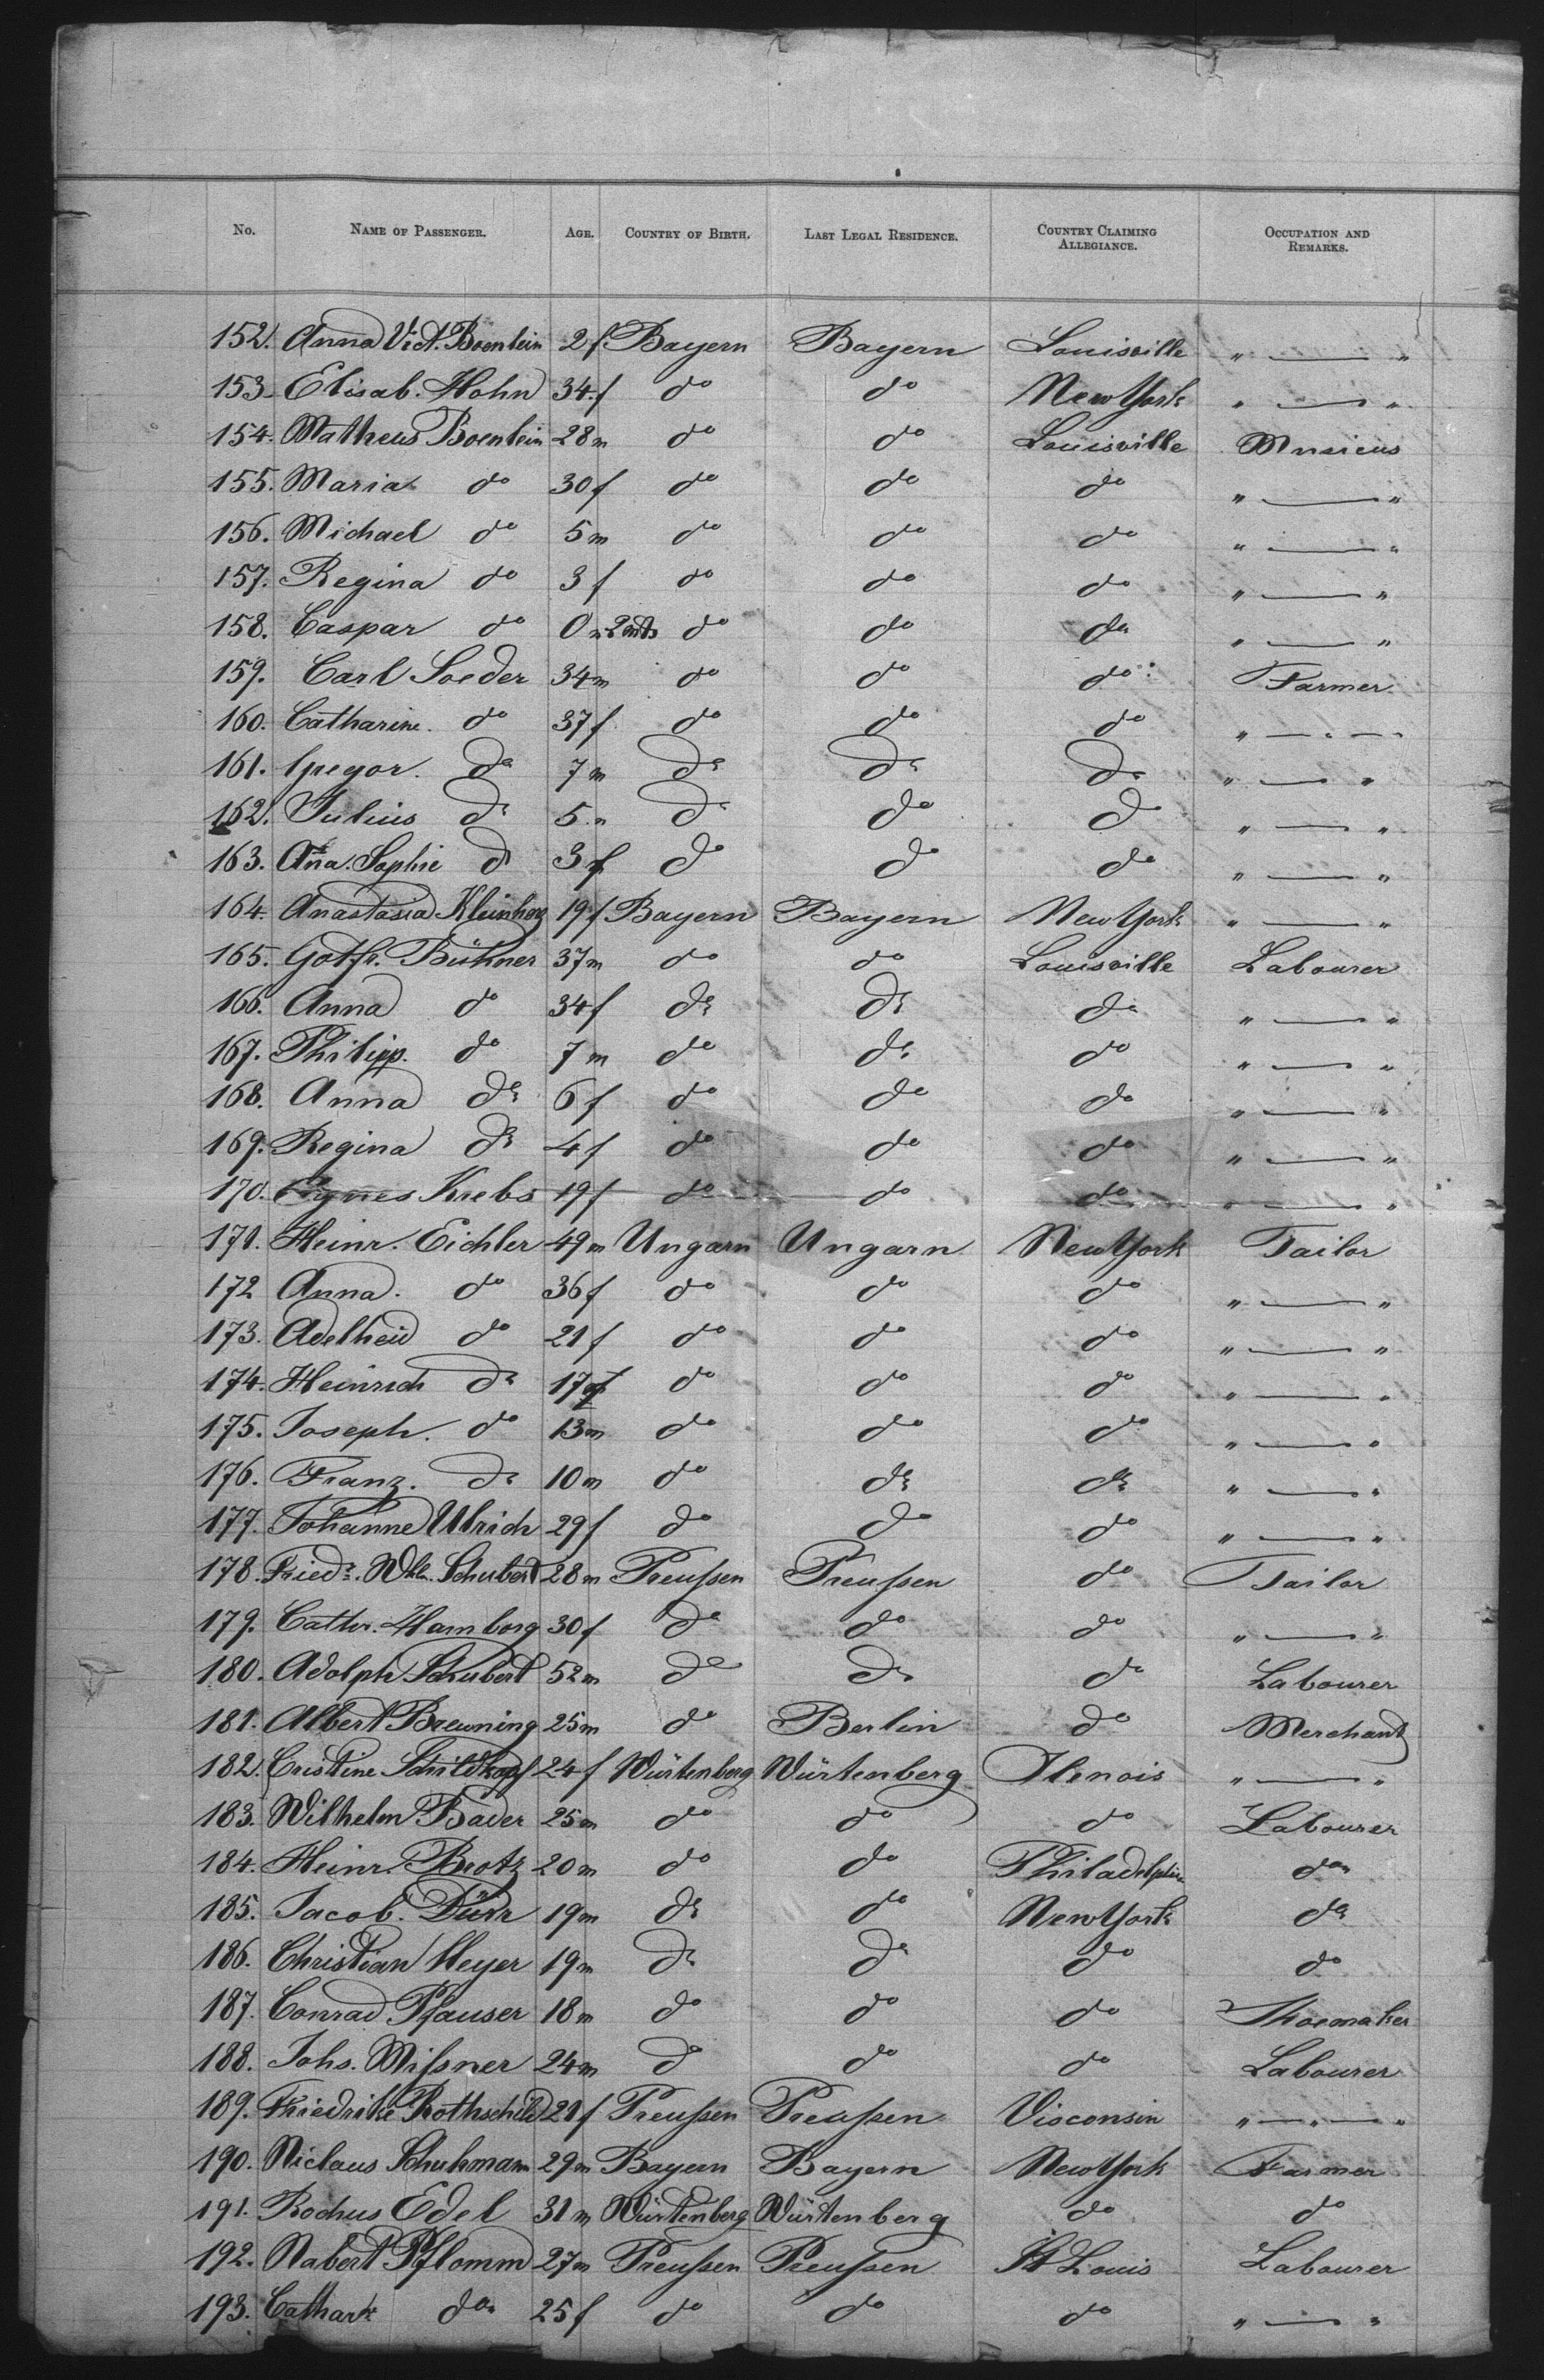 No. NAME OF PASSENGER. AGE. COUNTRY OF BIRTH. LAST LEGAL RESIDENCE. COUNTRY CLAIMING ALLEGIANCE. OCCUPATION AND REMARKS.
152. Anna Vict. Boenlein 2 f Bayern Bayern Louisville " — "
153. Elisab. Hohn 34 f do do New York " — "
154. Matheus Boenlein 28 m do do Louisville Musicus
155. Maria do 30 f do do do " — "
156. Michael do 5 m do do do " — "
157. Regina do 3 f do do do " — "
158. Caspar do 0 m 2 mts do do do " — "
159. Carl Soeder 34 m do do do Farmer
160. Catharine do 37 f do do do " — " —
161. Gregor. do 7 m do do do " — "
162. Julius do 5 m do do do " — "
163. Ana. Sophie do 3 f do do do " — "
164. Anastasia Kleinherz 19 f Bayern Bayern New York " — "
165. Gotfr. Bühner 37 m do do Louisville Labourer
166. Anna do 34 f do do do " — "
167. Philipp. do 7 m do do do " — "
168. Anna do 6 f do do do " — "
169. Regina do 4 f do do do " — "
170. Agnes Krebs 19 f do do do " — "
171. Heinr. Eichler 49 m Ungarn Ungarn New York Tailor
172 Anna. do 36 f do do do " — "
173. Adelheid do 21 f do do do " — "
174. Heinrich do 17 do do do " — "
175. Joseph. do 13 m do do do " — "
176. Franz. do 10 m do do do " — "
177. Johanne Ulrich 29 f do do do " — "
178. Friedr. Whlm. Schubert 28 m Preußen Preußen do Tailor
179. Cathr. Hamborg 30 f do do do " — "
180. Adolph Schubert 52 m do do do Labourer
181. Albert Breuning 25 m do Berlin do Merchand
182. Cristine Schildkopf 24 f Würtenberg Würtenberg Ilenois " — "
183. Wilhelm Bader 25 m do do do Labourer
184. Heinr. Brotz 20 m do do Philadelphia do
185. Jacob. Dürr 19 m do do New York do
186. Christian Meyer 19 m do do do do
187. Conrad Pfauser 18 m do do do Shoemaker
188. Johs. Mißner 24 m do do do Labourer
189. Friedrike Rothschild 21 f Preußen Preußen Visconsin " — " — "
190. Niclaus Schuhmann 29 m Bayern Bayern New York Farmer
191. Rochus Edel 31 m Würtenberg Würtenberg do do
192. Nabert Pflomm 27 m Preußen Preußen St Louis Labourer
193. Cathar. do 25 f do do do " — "